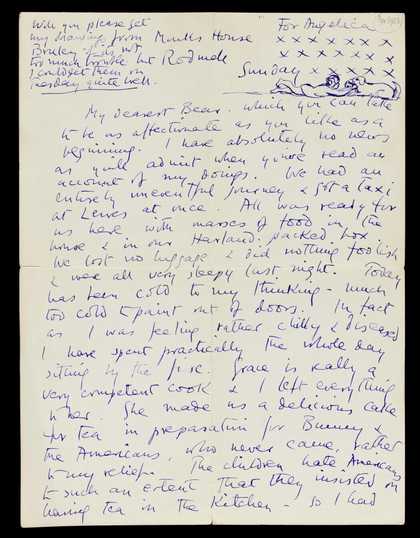 Will you please get
my drawing from Monks House
if it is not
too much trouble but Rodmell
I could get them on
Tuesday quite well.
For Angelica
x x x x x x
x x x x x x
x x x x x x
Sunday x x x x
My dearest Bear. which you can take
to be as affectionate as you like as a
beginning. I have absolutely no news
as you'll admit when you've read an
account of my doings. We had an
entirely uneventful journey & got a taxi
at Lewes at once. All was ready for
us here with masses of food in the
house & in our Harland-packed box
We lost no luggage & did nothing foolish
& were all very sleepy last night. Today
has been cold to my thinking - much
too cold to paint out of doors. In fact
as I was feeling rather chilly & diseased
I have spent practically the whole day
sitting by the fire. Grace is really a
very competent cook & I left everything
to her. She made us a delicious cake
for tea in preparation for Bunny &
the Americans, who never came, rather
to my relief. The children hate Americans
to such an extent that they insisted on
having tea in the kitchen - so I had